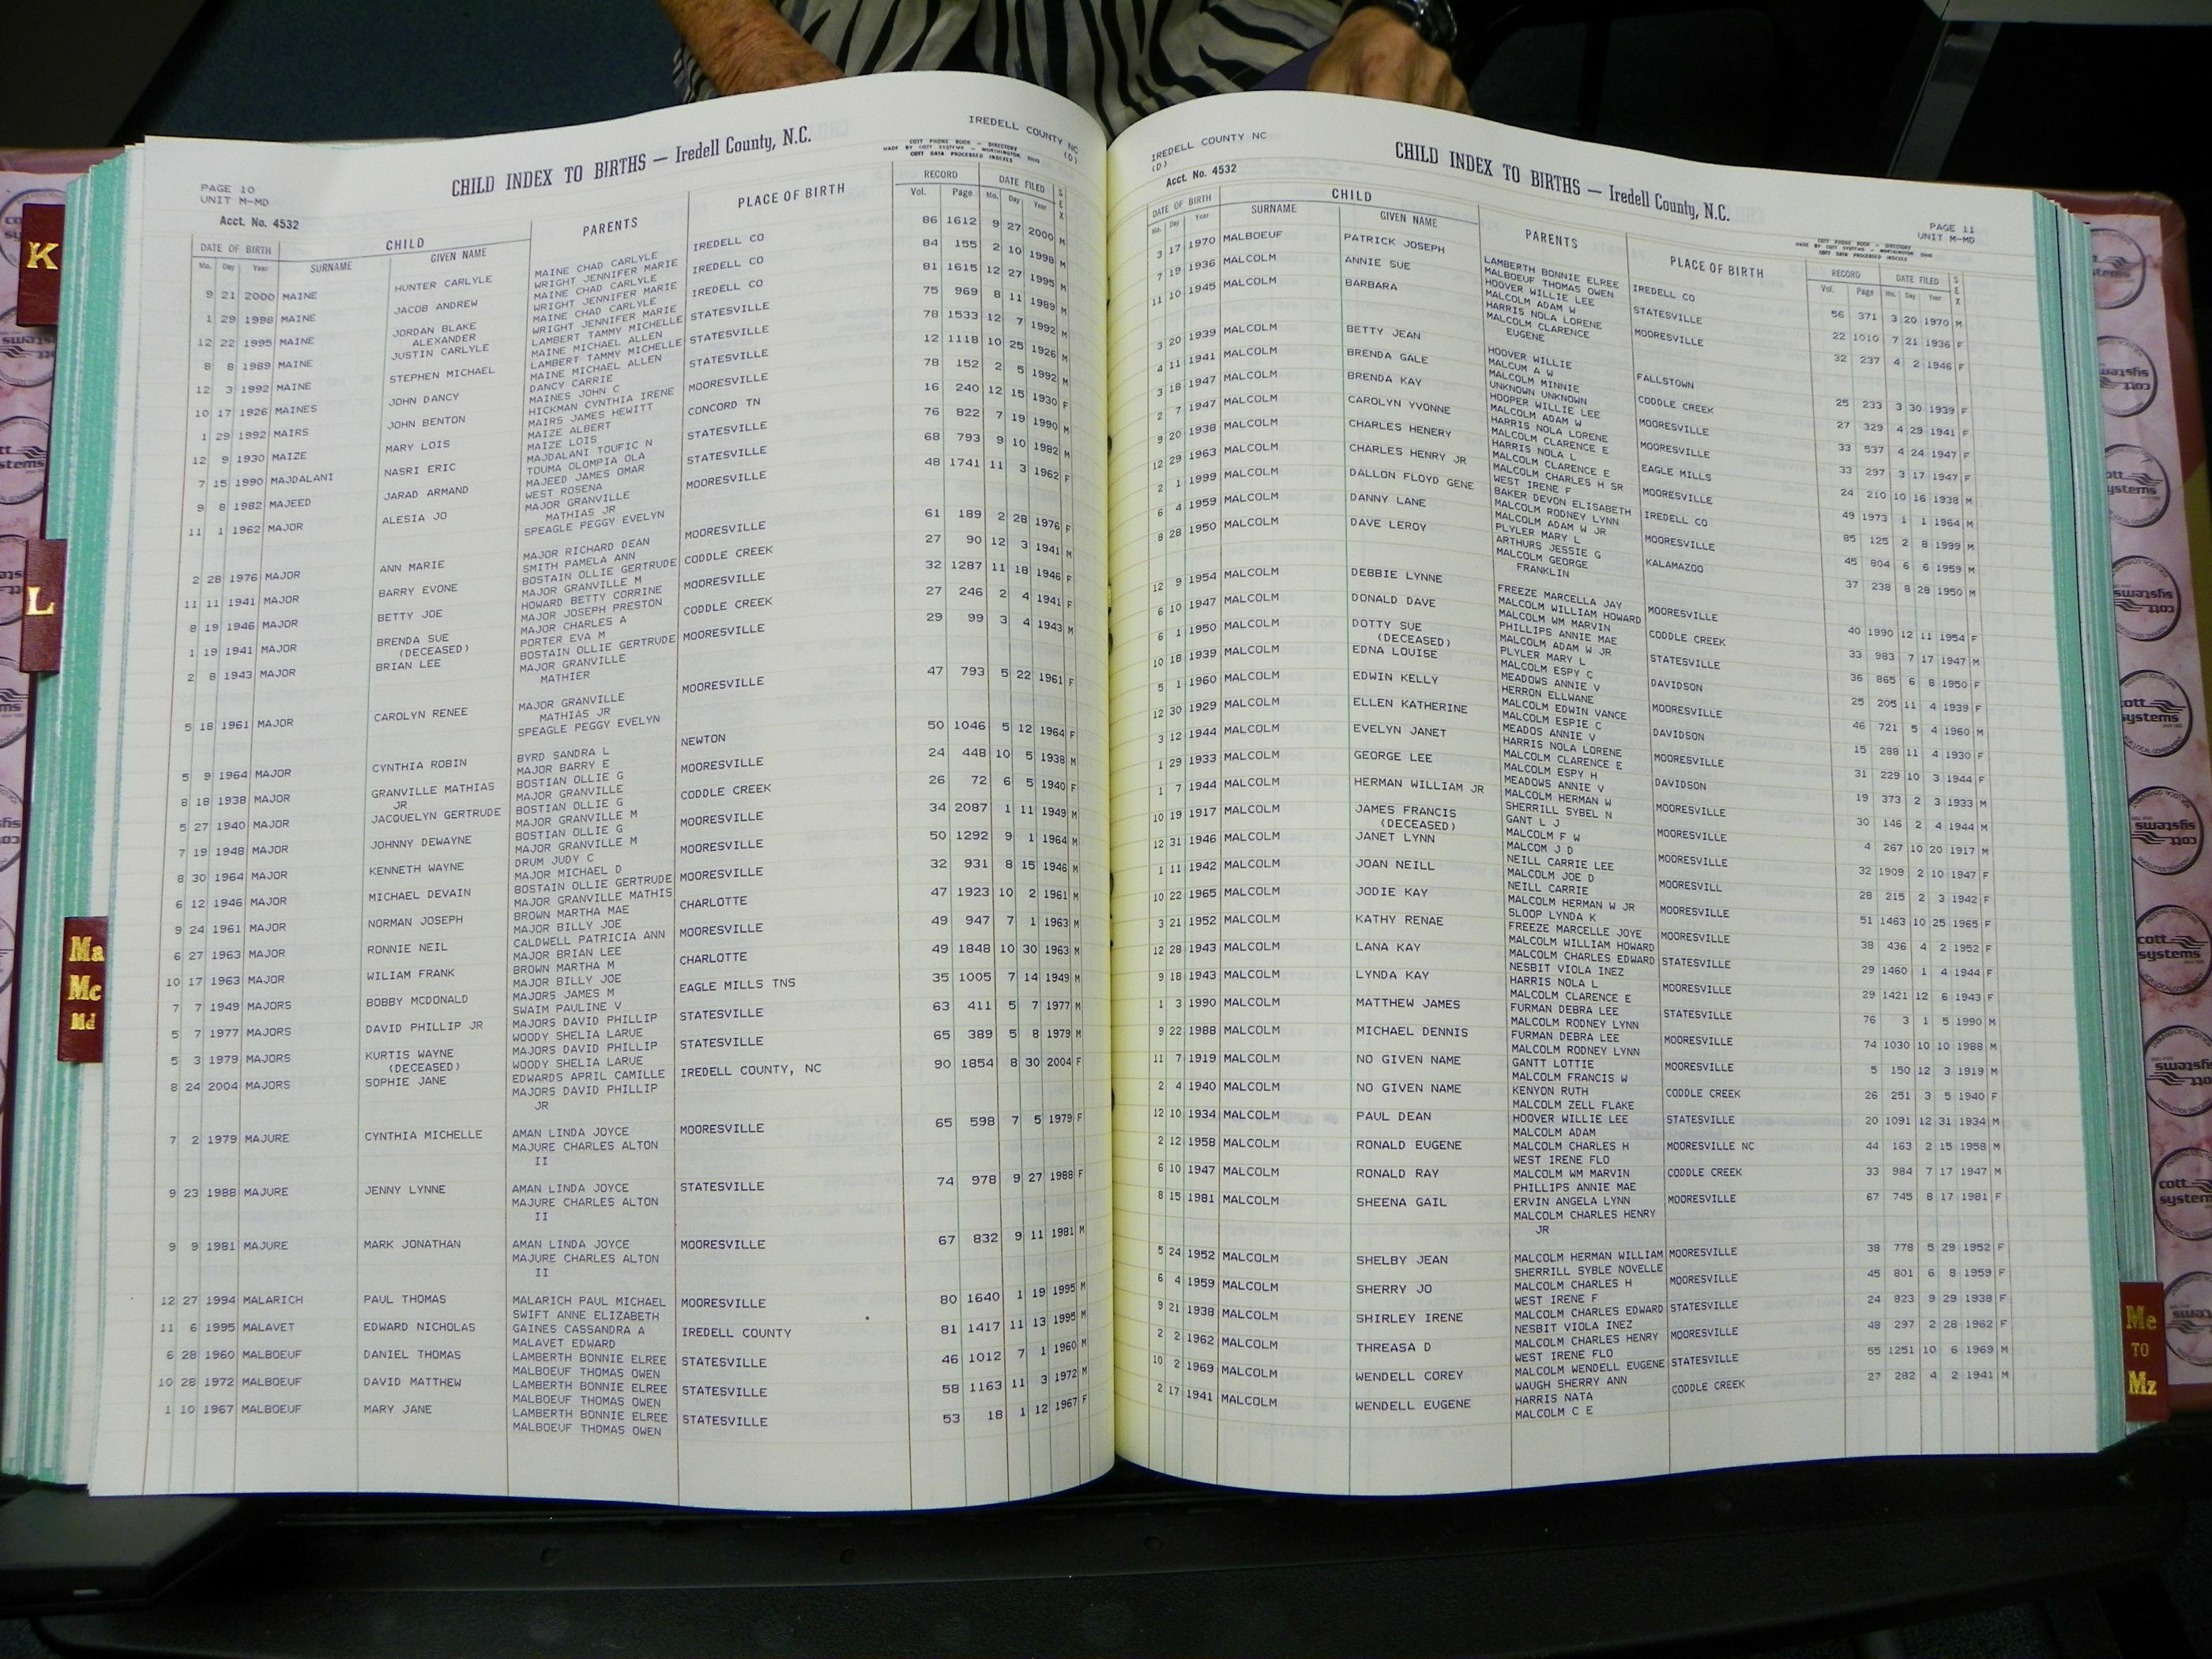 IREDELL COUNTY NC
(D)
CHILD INDEX TO BIRTHS — Iredell County, N.C.
COTT PHONE BOOK - DIRECTORY
MADE BY COTT SYSTEMS - WORTHINGTON, OHIO
COTT DATA PROCESSED INDEXES
PAGE 10
UNIT M-MD
Acct. No. 4532
DATE OF BIRTH CHILD PARENTS PLACE OF BIRTH RECORD DATE FILED SEX
Mo. Day Year SURNAME GIVEN NAME Vol. Page Mo. Day Year
9 21 2000 MAINE HUNTER CARLYLE MAINE CHAD CARLYLE IREDELL CO 86 1612 9 27 2000 M
WRIGHT JENNIFER MARIE
1 29 1998 MAINE JACOB ANDREW MAINE CHAD CARLYLE IREDELL CO 84 155 2 10 1998 M
WRIGHT JENNIFER MARIE
12 22 1995 MAINE JORDAN BLAKE MAINE CHAD CARLYLE IREDELL CO 81 1615 12 27 1995 M
ALEXANDER WRIGHT JENNIFER MARIE
8 8 1989 MAINE JUSTIN CARLYLE LAMBERT TAMMY MICHELLE STATESVILLE 75 969 8 11 1989 M
MAINE MICHAEL ALLEN
12 3 1992 MAINE STEPHEN MICHAEL LAMBERT TAMMY MICHELLE STATESVILLE 78 1533 12 7 1992 M
MAINE MICHAEL ALLEN
10 17 1926 MAINES JOHN DANCY DANCY CARRIE STATESVILLE 12 1118 10 25 1926 M
MAINES JOHN C
1 29 1992 MAIRS JOHN BENTON HICKMAN CYNTHIA IRENE MOORESVILLE 78 152 2 5 1992 M
MAIRS JAMES HEWITT
12 9 1930 MAIZE MARY LOIS MAIZE ALBERT CONCORD TN 16 240 12 15 1930 F
MAIZE LOIS
7 15 1990 MAJDALANI NASRI ERIC MAJDALANI TOUFIC N STATESVILLE 76 822 7 19 1990 M
TOUMA OLOMPIA OLA
9 8 1982 MAJEED JARAD ARMAND MAJEED JAMES OMAR STATESVILLE 68 793 9 10 1982 M
WEST ROSENA
11 1 1962 MAJOR ALESIA JO MAJOR GRANVILLE MOORESVILLE 48 1741 11 3 1962 F
MATHIAS JR
SPEAGLE PEGGY EVELYN
2 28 1976 MAJOR ANN MARIE MAJOR RICHARD DEAN MOORESVILLE 61 189 2 28 1976 F
SMITH PAMELA ANN
11 11 1941 MAJOR BARRY EVONE BOSTAIN OLLIE GERTRUDE CODDLE CREEK 27 90 12 3 1941 M
MAJOR GRANVILLE M
8 19 1946 MAJOR BETTY JOE HOWARD BETTY CORRINE MOORESVILLE 32 1287 11 18 1946 F
MAJOR JOSEPH PRESTON
1 19 1941 MAJOR BRENDA SUE MAJOR CHARLES A CODDLE CREEK 27 246 2 4 1941 F
(DECEASED) PORTER EVA M
2 8 1943 MAJOR BRIAN LEE BOSTAIN OLLIE GERTRUDE MOORESVILLE 29 99 3 4 1943 M
MAJOR GRANVILLE
MATHIER
5 18 1961 MAJOR CAROLYN RENEE MAJOR GRANVILLE MOORESVILLE 47 793 5 22 1961 F
MATHIAS JR
SPEAGLE PEGGY EVELYN
5 9 1964 MAJOR CYNTHIA ROBIN BYRD SANDRA L NEWTON 50 1046 5 12 1964 F
MAJOR BARRY E
8 18 1938 MAJOR GRANVILLE MATHIAS BOSTIAN OLLIE G MOORESVILLE 24 448 10 5 1938 M
JR MAJOR GRANVILLE
5 27 1940 MAJOR JACQUELYN GERTRUDE BOSTIAN OLLIE G CODDLE CREEK 26 72 6 5 1940 F
MAJOR GRANVILLE M
7 19 1948 MAJOR JOHNNY DEWAYNE BOSTIAN OLLIE G MOORESVILLE 34 2087 1 11 1949 M
MAJOR GRANVILLE M
8 30 1964 MAJOR KENNETH WAYNE DRUM JUDY C MOORESVILLE 50 1292 9 1 1964 M
MAJOR MICHAEL D
6 12 1946 MAJOR MICHAEL DEVAIN BOSTAIN OLLIE GERTRUDE MOORESVILLE 32 931 8 15 1946 M
MAJOR GRANVILLE MATHIS
9 24 1961 MAJOR NORMAN JOSEPH BROWN MARTHA MAE CHARLOTTE 47 1923 10 2 1961 M
MAJOR BILLY JOE
6 27 1963 MAJOR RONNIE NEIL CALDWELL PATRICIA ANN MOORESVILLE 49 947 7 1 1963 M
MAJOR BRIAN LEE
10 17 1963 MAJOR WILIAM FRANK BROWN MARTHA M CHARLOTTE 49 1848 10 30 1963 M
MAJOR BILLY JOE
7 7 1949 MAJORS BOBBY MCDONALD MAJORS JAMES M EAGLE MILLS TNS 35 1005 7 14 1949 M
SWAIM PAULINE V
5 7 1977 MAJORS DAVID PHILLIP JR MAJORS DAVID PHILLIP STATESVILLE 63 411 5 7 1977 M
WOODY SHELIA LARUE
5 3 1979 MAJORS KURTIS WAYNE MAJORS DAVID PHILLIP STATESVILLE 65 389 5 8 1979 M
(DECEASED) WOODY SHELIA LARUE
8 24 2004 MAJORS SOPHIE JANE EDWARDS APRIL CAMILLE IREDELL COUNTY, NC 90 1854 8 30 2004 F
MAJORS DAVID PHILLIP
JR
7 2 1979 MAJURE CYNTHIA MICHELLE AMAN LINDA JOYCE MOORESVILLE 65 598 7 5 1979 F
MAJURE CHARLES ALTON
II
9 23 1988 MAJURE JENNY LYNNE AMAN LINDA JOYCE STATESVILLE 74 978 9 27 1988 F
MAJURE CHARLES ALTON
II
9 9 1981 MAJURE MARK JONATHAN AMAN LINDA JOYCE MOORESVILLE 67 832 9 11 1981 M
MAJURE CHARLES ALTON
II
12 27 1994 MALARICH PAUL THOMAS MALARICH PAUL MICHAEL MOORESVILLE 80 1640 1 19 1995 M
SWIFT ANNE ELIZABETH
11 6 1995 MALAVET EDWARD NICHOLAS GAINES CASSANDRA A IREDELL COUNTY 81 1417 11 13 1995 M
MALAVET EDWARD
6 28 1960 MALBOEUF DANIEL THOMAS LAMBERTH BONNIE ELREE STATESVILLE 46 1012 7 1 1960 M
MALBOEUF THOMAS OWEN
10 28 1972 MALBOEUF DAVID MATTHEW LAMBERTH BONNIE ELREE STATESVILLE 58 1163 11 3 1972 M
MALBOEUF THOMAS OWEN
1 10 1967 MALBOEUF MARY JANE LAMBERTH BONNIE ELREE STATESVILLE 53 18 1 12 1967 F
MALBOEUF THOMAS OWEN
IREDELL COUNTY NC
(D)
Acct. No. 4532
CHILD INDEX TO BIRTHS — Iredell County, N.C.
PAGE 11
UNIT M-MD
COTT PHONE BOOK - DIRECTORY
MADE BY COTT SYSTEMS - WORTHINGTON, OHIO
COTT DATA PROCESSED INDEXES
DATE OF BIRTH CHILD PARENTS PLACE OF BIRTH RECORD DATE FILED SEX
Mo. Day Year SURNAME GIVEN NAME Vol. Page Mo. Day Year
3 17 1970 MALBOEUF PATRICK JOSEPH LAMBERTH BONNIE ELREE IREDELL CO 56 371 3 20 1970 M
MALBOEUF THOMAS OWEN
7 19 1936 MALCOLM ANNIE SUE HOOVER WILLIE LEE STATESVILLE 22 1010 7 21 1936 F
MALCOLM ADAM W
11 10 1945 MALCOLM BARBARA HARRIS NOLA LORENE MOORESVILLE 32 237 4 2 1946 F
MALCOLM CLARENCE
EUGENE
3 20 1939 MALCOLM BETTY JEAN HOOVER WILLIE FALLSTOWN 25 233 3 30 1939 F
MALCUM A W
4 11 1941 MALCOLM BRENDA GALE MALCOLM MINNIE CODDLE CREEK 27 329 4 29 1941 F
UNKNOWN UNKNOWN
3 18 1947 MALCOLM BRENDA KAY HOOPER WILLIE LEE MOORESVILLE 33 537 4 24 1947 F
MALCOLM ADAM W
2 7 1947 MALCOLM CAROLYN YVONNE HARRIS NOLA LORENE MOORESVILLE 33 297 3 17 1947 F
MALCOLM CLARENCE E
9 20 1938 MALCOLM CHARLES HENERY HARRIS NOLA L EAGLE MILLS 24 210 10 16 1938 M
MALCOLM CLARENCE E
12 29 1963 MALCOLM CHARLES HENRY JR MALCOLM CHARLES H SR MOORESVILLE 49 1973 1 1 1964 M
WEST IRENE F
2 1 1999 MALCOLM DALLON FLOYD GENE BAKER DEVON ELISABETH IREDELL CO 85 125 2 8 1999 M
MALCOLM RODNEY LYNN
6 4 1959 MALCOLM DANNY LANE MALCOLM ADAM W JR MOORESVILLE 45 804 6 6 1959 M
PLYLER MARY L
8 28 1950 MALCOLM DAVE LEROY ARTHURS JESSIE G KALAMAZOO 37 238 8 28 1950 M
MALCOLM GEORGE
FRANKLIN
12 9 1954 MALCOLM DEBBIE LYNNE FREEZE MARCELLA JAY MOORESVILLE 40 1990 12 11 1954 F
MALCOLM WILLIAM HOWARD
6 10 1947 MALCOLM DONALD DAVE MALCOLM WM MARVIN CODDLE CREEK 33 983 7 17 1947 M
PHILLIPS ANNIE MAE
6 1 1950 MALCOLM DOTTY SUE MALCOLM ADAM W JR STATESVILLE 36 865 6 8 1950 F
(DECEASED) PLYLER MARY L
10 18 1939 MALCOLM EDNA LOUISE MALCOLM ESPY C DAVIDSON 25 205 11 4 1939 F
MEADOWS ANNIE V
5 1 1960 MALCOLM EDWIN KELLY HERRON ELLWANE MOORESVILLE 46 721 5 4 1960 M
MALCOLM EDWIN VANCE
12 30 1929 MALCOLM ELLEN KATHERINE MALCOLM ESPIE C DAVIDSON 15 288 11 4 1930 F
MEADOS ANNIE V
3 12 1944 MALCOLM EVELYN JANET HARRIS NOLA LORENE MOORESVILLE 31 229 10 3 1944 F
MALCOLM CLARENCE E
1 29 1933 MALCOLM GEORGE LEE MALCOLM ESPY H DAVIDSON 19 373 2 3 1933 M
MEADOWS ANNIE V
1 7 1944 MALCOLM HERMAN WILLIAM JR MALCOLM HERMAN W MOORESVILLE 30 146 2 4 1944 M
SHERRILL SYBEL N
10 19 1917 MALCOLM JAMES FRANCIS GANT L J MOORESVILLE 4 267 10 20 1917 M
(DECEASED) MALCOLM F W
12 31 1946 MALCOLM JANET LYNN MALCOM J D MOORESVILLE 32 1909 2 10 1947 F
NEILL CARRIE LEE
1 11 1942 MALCOLM JOAN NEILL MALCOLM JOE D MOORESVILL 28 215 2 3 1942 F
NEILL CARRIE
10 22 1965 MALCOLM JODIE KAY MALCOLM HERMAN W JR MOORESVILLE 51 1463 10 25 1965 F
SLOOP LYNDA K
3 21 1952 MALCOLM KATHY RENAE FREEZE MARCELLE JOYE MOORESVILLE 38 436 4 2 1952 F
MALCOLM WILLIAM HOWARD
12 28 1943 MALCOLM LANA KAY MALCOLM CHARLES EDWARD STATESVILLE 29 1460 1 4 1944 F
NESBIT VIOLA INEZ
9 18 1943 MALCOLM LYNDA KAY HARRIS NOLA L MOORESVILLE 29 1421 12 6 1943 F
MALCOLM CLARENCE E
1 3 1990 MALCOLM MATTHEW JAMES FURMAN DEBRA LEE STATESVILLE 76 3 1 5 1990 M
MALCOLM RODNEY LYNN
9 22 1988 MALCOLM MICHAEL DENNIS FURMAN DEBRA LEE MOORESVILLE 74 1030 10 10 1988 M
MALCOLM RODNEY LYNN
11 7 1919 MALCOLM NO GIVEN NAME GANTT LOTTIE MOORESVILLE 5 150 12 3 1919 M
MALCOLM FRANCIS W
2 4 1940 MALCOLM NO GIVEN NAME KENYON RUTH CODDLE CREEK 26 251 3 5 1940 F
MALCOLM ZELL FLAKE
12 10 1934 MALCOLM PAUL DEAN HOOVER WILLIE LEE STATESVILLE 20 1091 12 31 1934 M
MALCOLM ADAM
2 12 1958 MALCOLM RONALD EUGENE MALCOLM CHARLES H MOORESVILLE NC 44 163 2 15 1958 M
WEST IRENE FLO
6 10 1947 MALCOLM RONALD RAY MALCOLM WM MARVIN CODDLE CREEK 33 984 7 17 1947 M
PHILLIPS ANNIE MAE
8 15 1981 MALCOLM SHEENA GAIL ERVIN ANGELA LYNN MOORESVILLE 67 745 8 17 1981 F
MALCOLM CHARLES HENRY
JR
5 24 1952 MALCOLM SHELBY JEAN MALCOLM HERMAN WILLIAM MOORESVILLE 38 778 5 29 1952 F
SHERRILL SYBLE NOVELLE
6 4 1959 MALCOLM SHERRY JO MALCOLM CHARLES H MOORESVILLE 45 801 6 8 1959 F
WEST IRENE F
9 21 1938 MALCOLM SHIRLEY IRENE MALCOLM CHARLES EDWARD STATESVILLE 24 823 9 29 1938 F
NESBIT VIOLA INEZ
2 2 1962 MALCOLM THREASA D MALCOLM CHARLES HENRY MOORESVILLE 48 297 2 28 1962 F
WEST IRENE FLO
10 2 1969 MALCOLM WENDELL COREY MALCOLM WENDELL EUGENE STATESVILLE 55 1251 10 6 1969 M
WAUGH SHERRY ANN
2 17 1941 MALCOLM WENDELL EUGENE HARRIS NATA CODDLE CREEK 27 282 4 2 1941 M
MALCOLM C E
K
L
Ma
Mc
Md
Me
TO
Mz
cott
systems